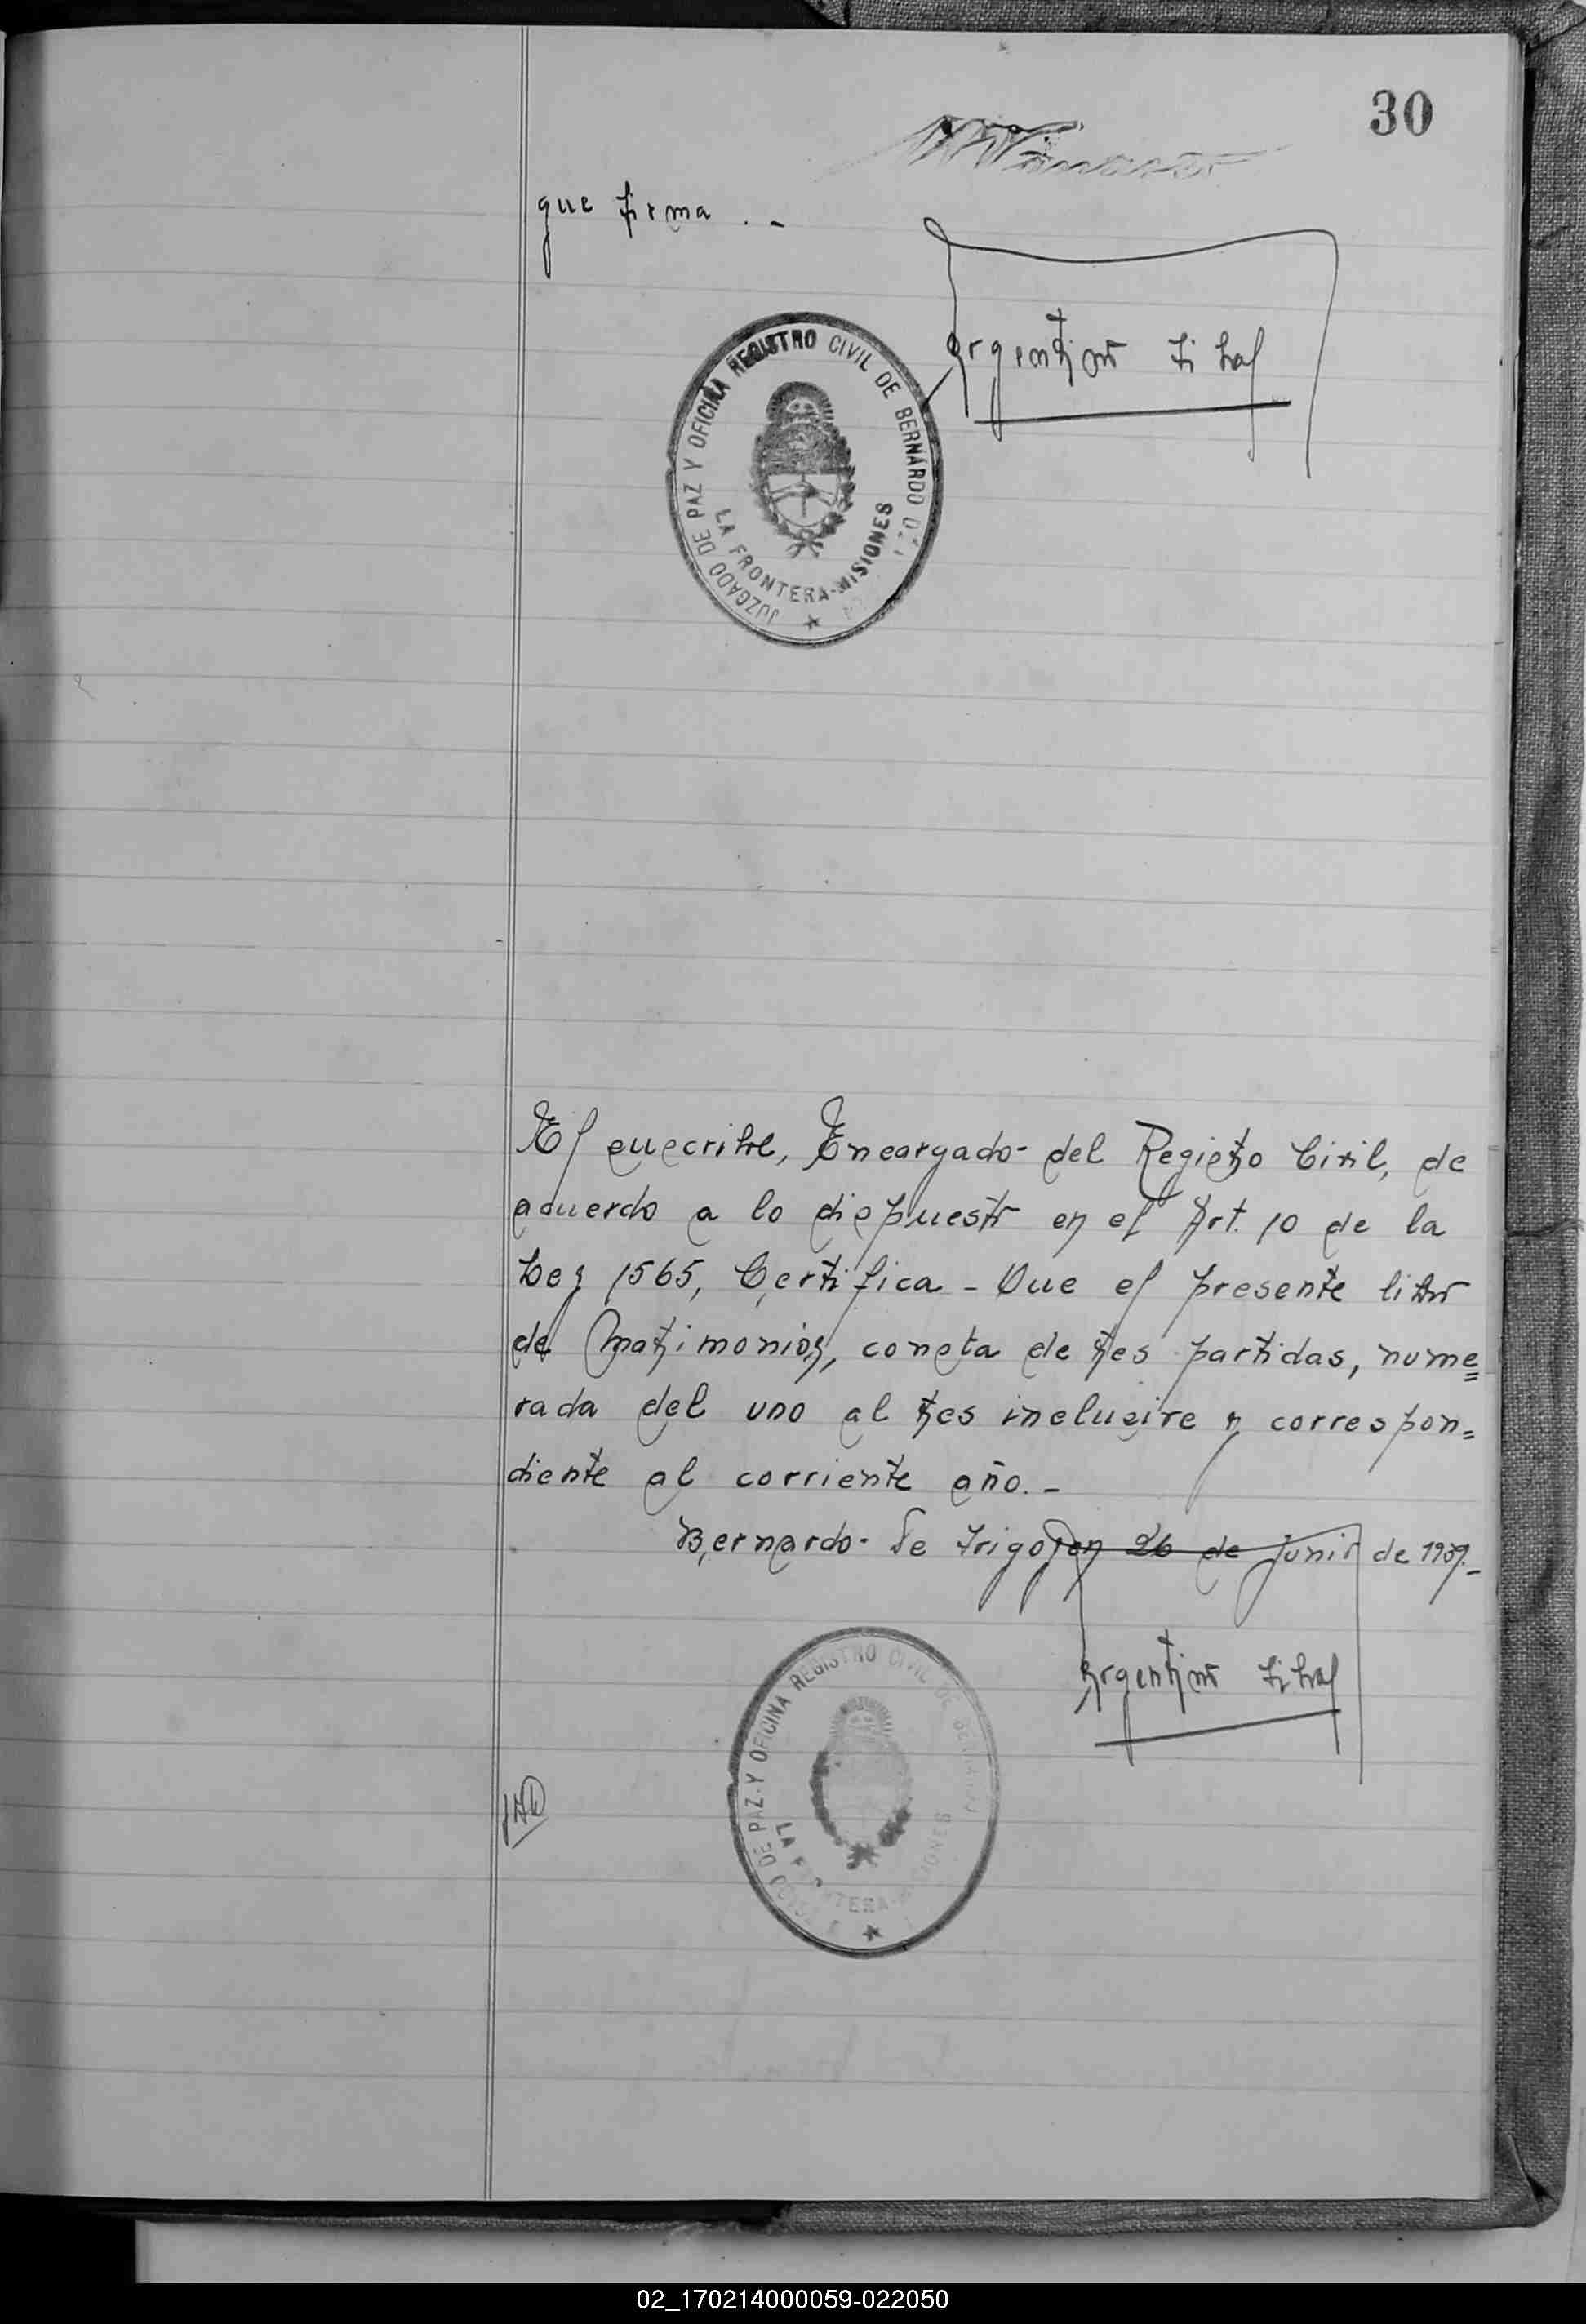 30
que firma . -
JUZGADO DE PAZ Y OFICINA REGISTRO CIVIL DE BERNARDO DE I
LA FRONTERA-MISIONES
El suscribe, Encargado del Registro Civil, de
acuerdo a lo dispuesto en el Art. 10 de la
Ley 1565, Certifica - Que el presente libro
de Matrimonios, consta de tres partidas, nume=
rada del uno al tres inclusive y correspon=
diente al corriente año. -
Bernardo de Irigoyen 26 de Junio de 1937.-
Argentino
DE PAZ Y OFICINA REGISTRO CIVIL DE BERNARDO
LA FRONTERA-MISIONES
02_170214000059-022050